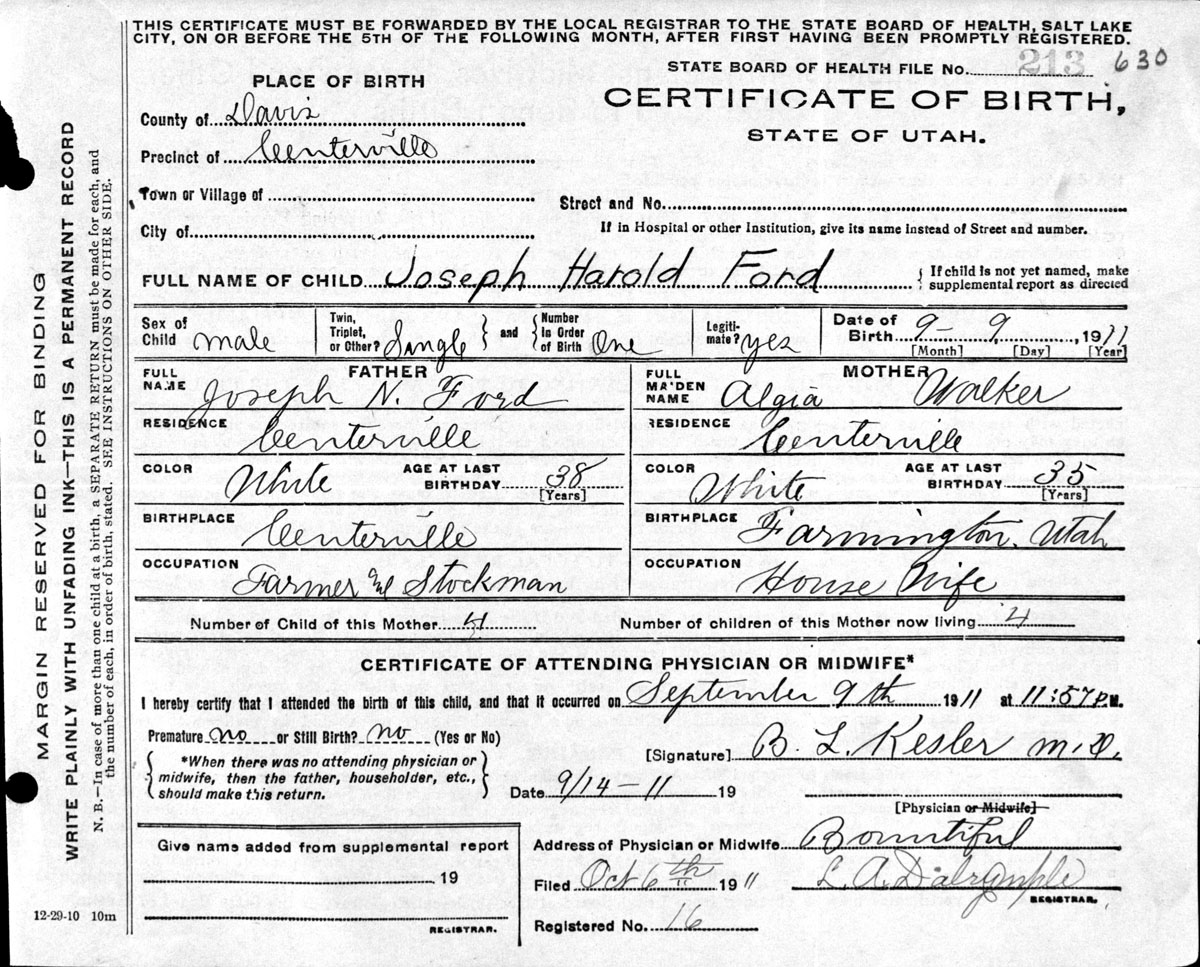 THIS CERTIFICATE MUST BE FORWARDED BY THE LOCAL REGISTRAR TO THE STATE BOARD OF HEALTH, SALT LAKE
CITY, ON OR BEFORE THE 5TH OF THE FOLLOWING MONTH, AFTER FIRST HAVING BEEN PROMPTLY REGISTERED.
STATE BOARD OF HEALTH FILE No. 213 630
PLACE OF BIRTH
CERTIFICATE OF BIRTH,
STATE OF UTAH.
County of Davis
Precinct of Centerville
Town or Village of
Street and No.
City of
If in Hospital or other Institution, give its name instead of Street and number.
FULL NAME OF CHILD Joseph Harold Ford { If child is not yet named, make
supplemental report as directed
Sex of Child male
Twin, Triplet, or Other? Single } and { Number In Order of Birth One
Legiti-mate? yes
Date of Birth 9 - 9, 1911
[Month] [Day] [Year]
FATHER
FULL NAME Joseph N. Ford
RESIDENCE Centerville
COLOR White AGE AT LAST BIRTHDAY 38 [Years]
BIRTHPLACE Centerville
OCCUPATION Farmer & Stockman
MOTHER
FULL MAIDEN NAME Algia Walker
RESIDENCE Centerville
COLOR White AGE AT LAST BIRTHDAY 35 [Years]
BIRTHPLACE Farmington, Utah
OCCUPATION House Wife
Number of Child of this Mother 4 Number of children of this Mother now living 4
CERTIFICATE OF ATTENDING PHYSICIAN OR MIDWIFE*
I hereby certify that I attended the birth of this child, and that it occurred on September 9th 1911 at 11:57 P.M.
Premature no or Still Birth? no (Yes or No)
{ *When there was no attending physician or
midwife, then the father, householder, etc.,
should make this return. }
[Signature] B. L. Kesler M.D.
Date 9/14-11 19
[Physician or Midwife]
Give name added from supplemental report
19
REGISTRAR.
Address of Physician or Midwife Bountiful
Filed Oct 6th 1911 L. A. Dalrymple
REGISTRAR.
Registered No. 16
12-29-10 10m
MARGIN RESERVED FOR BINDING
WRITE PLAINLY WITH UNFADING INK—THIS IS A PERMANENT RECORD
N. B.—In case of more than one child at a birth, a SEPARATE RETURN must be made for each, and
the number of each, in order of birth, stated. SEE INSTRUCTIONS ON OTHER SIDE.